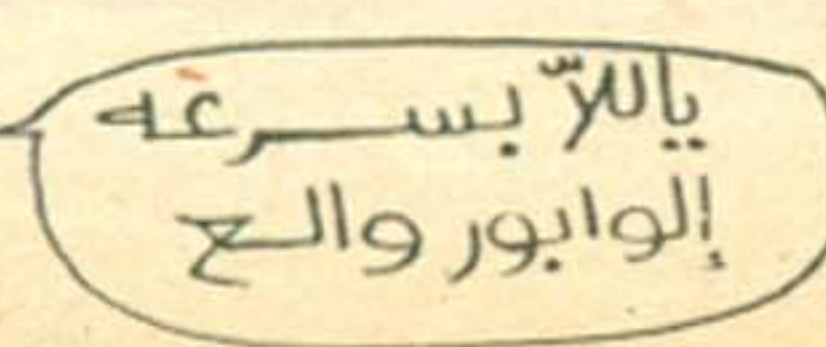 ياللاّ بسرعه
إلوابور والع